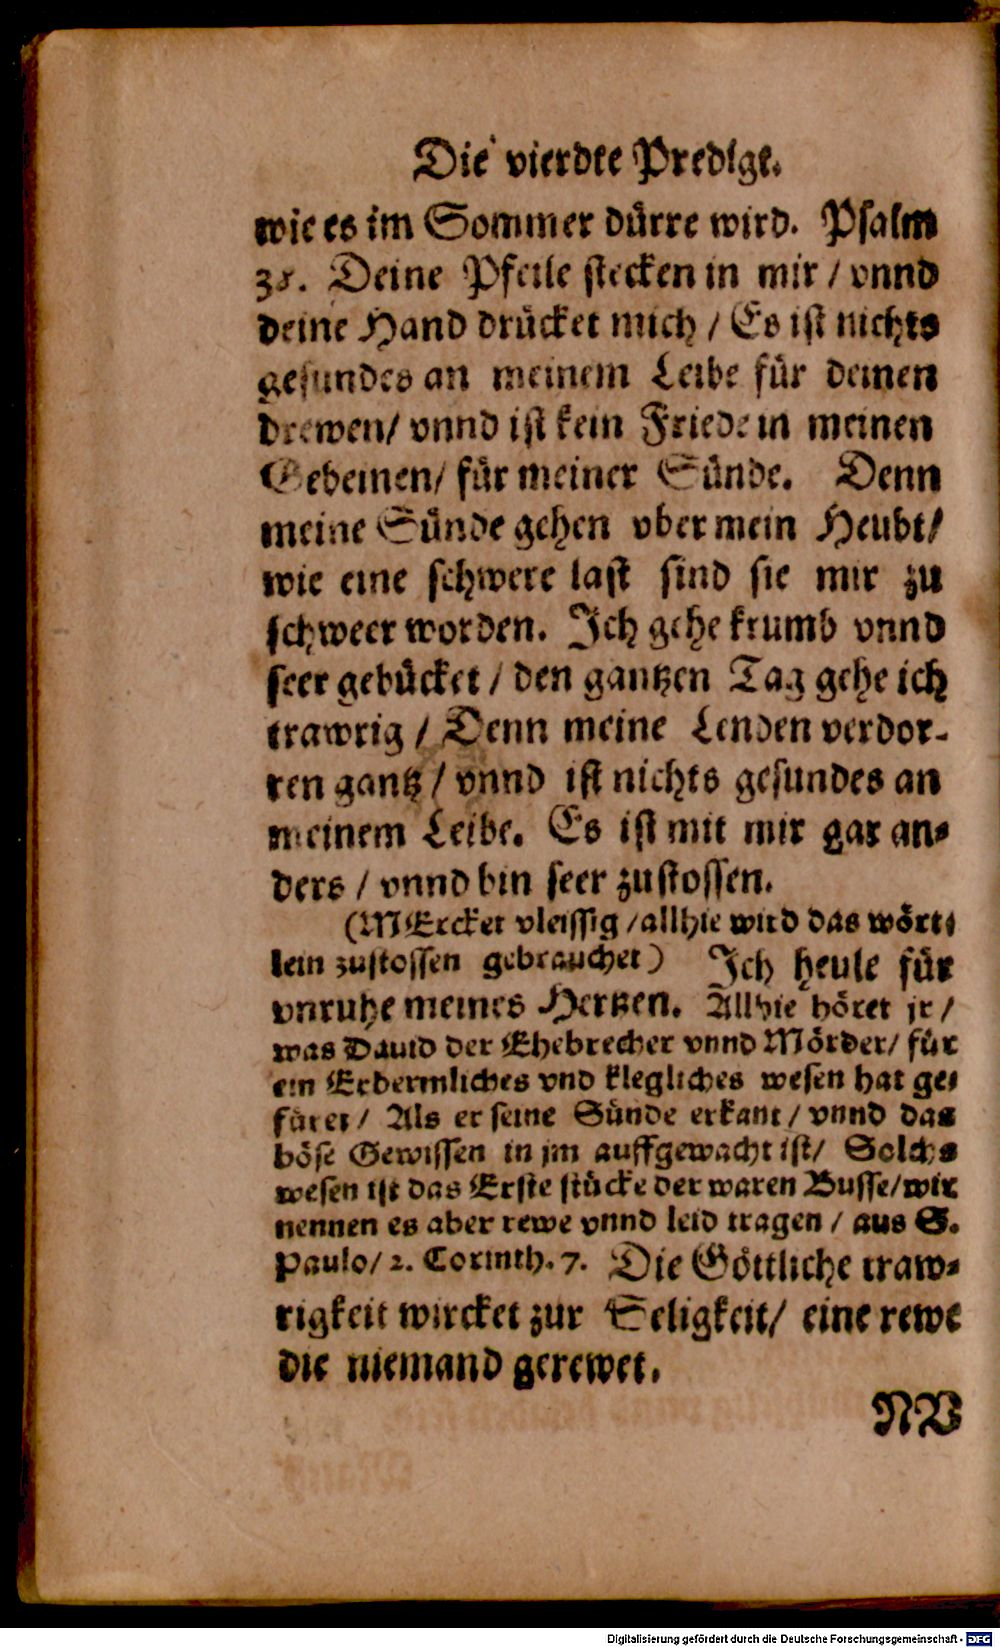 Die vierdte Predige.
wie es im Sommer dürre wird. Psalm
38. Deine Pfeile stecken in mir / vnnd
deine Hand drücket mich / Es ist nichts
gesundes an meinem Leibe für deinen
drewen / vnnd ist kein Friede in meinen
Gebeinen / für meiner Sünde. Denn
meine Sünde gehen vber mein Heubt /
wie eine schwere last sind sie mir zu
schweer worden. Ich gehe krumb vnnd
seer gebücket / den gantzen Tag gehe ich
trawrig / Denn meine Lenden verdor-
ren gantz / vnnd ist nichts gesundes an
meinem Leibe. Es ist mit mir gar an-
ders / vnnd bin seer zustossen.
(MErcket vleissig / allhie wird das wört-
lein zustossen gebrauchet) Ich heule für
vnruhe meines Hertzen. Allhie höret jr /
was Dauid der Ehebrecher vnnd Mörder / für
ein Erbermliches vnd klegliches wesen hat ge-
füret / Als er seine Sünde erkant / vnnd das
böse Gewissen in jm auffgewacht ist / Solchs
wesen ist das Erste stücke der waren Busse / wir
nennen es aber rewe vnnd leid tragen / aus S.
Paulo / 2. Corinth. 7. Die Göttliche traw-
rigkeit wircket zur Seligkeit / eine rewe
die niemand gerewet.
NV
Digitalisierung gefördert durch die Deutsche Forschungsgemeinschaft - DFG